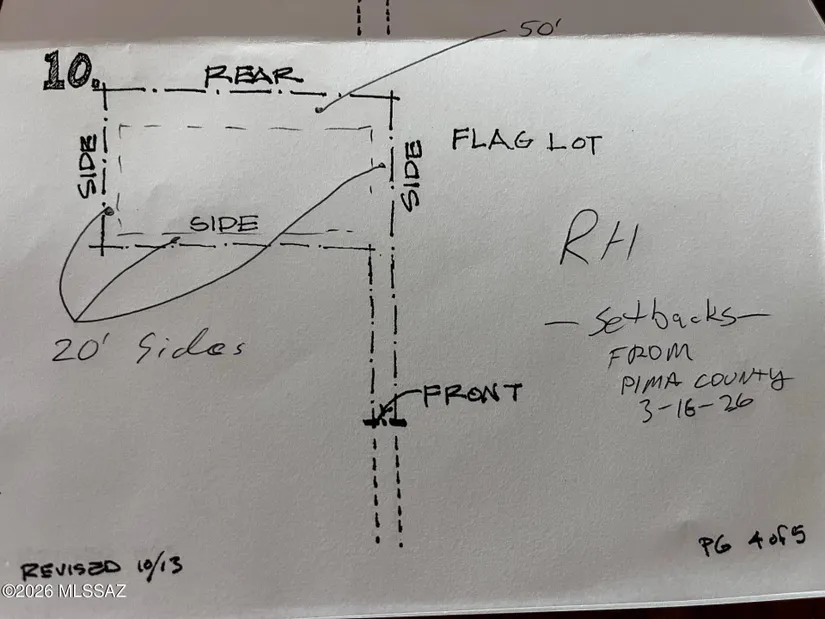 50'
10.
REAR
SIDE
SIDE
FLAG LOT
SIDE
RH
- Setbacks -
FROM
PIMA COUNTY
3-16-26
20' Sides
FRONT
PG 4 of 5
REVISED 10/13
©2026 MLSSAZ